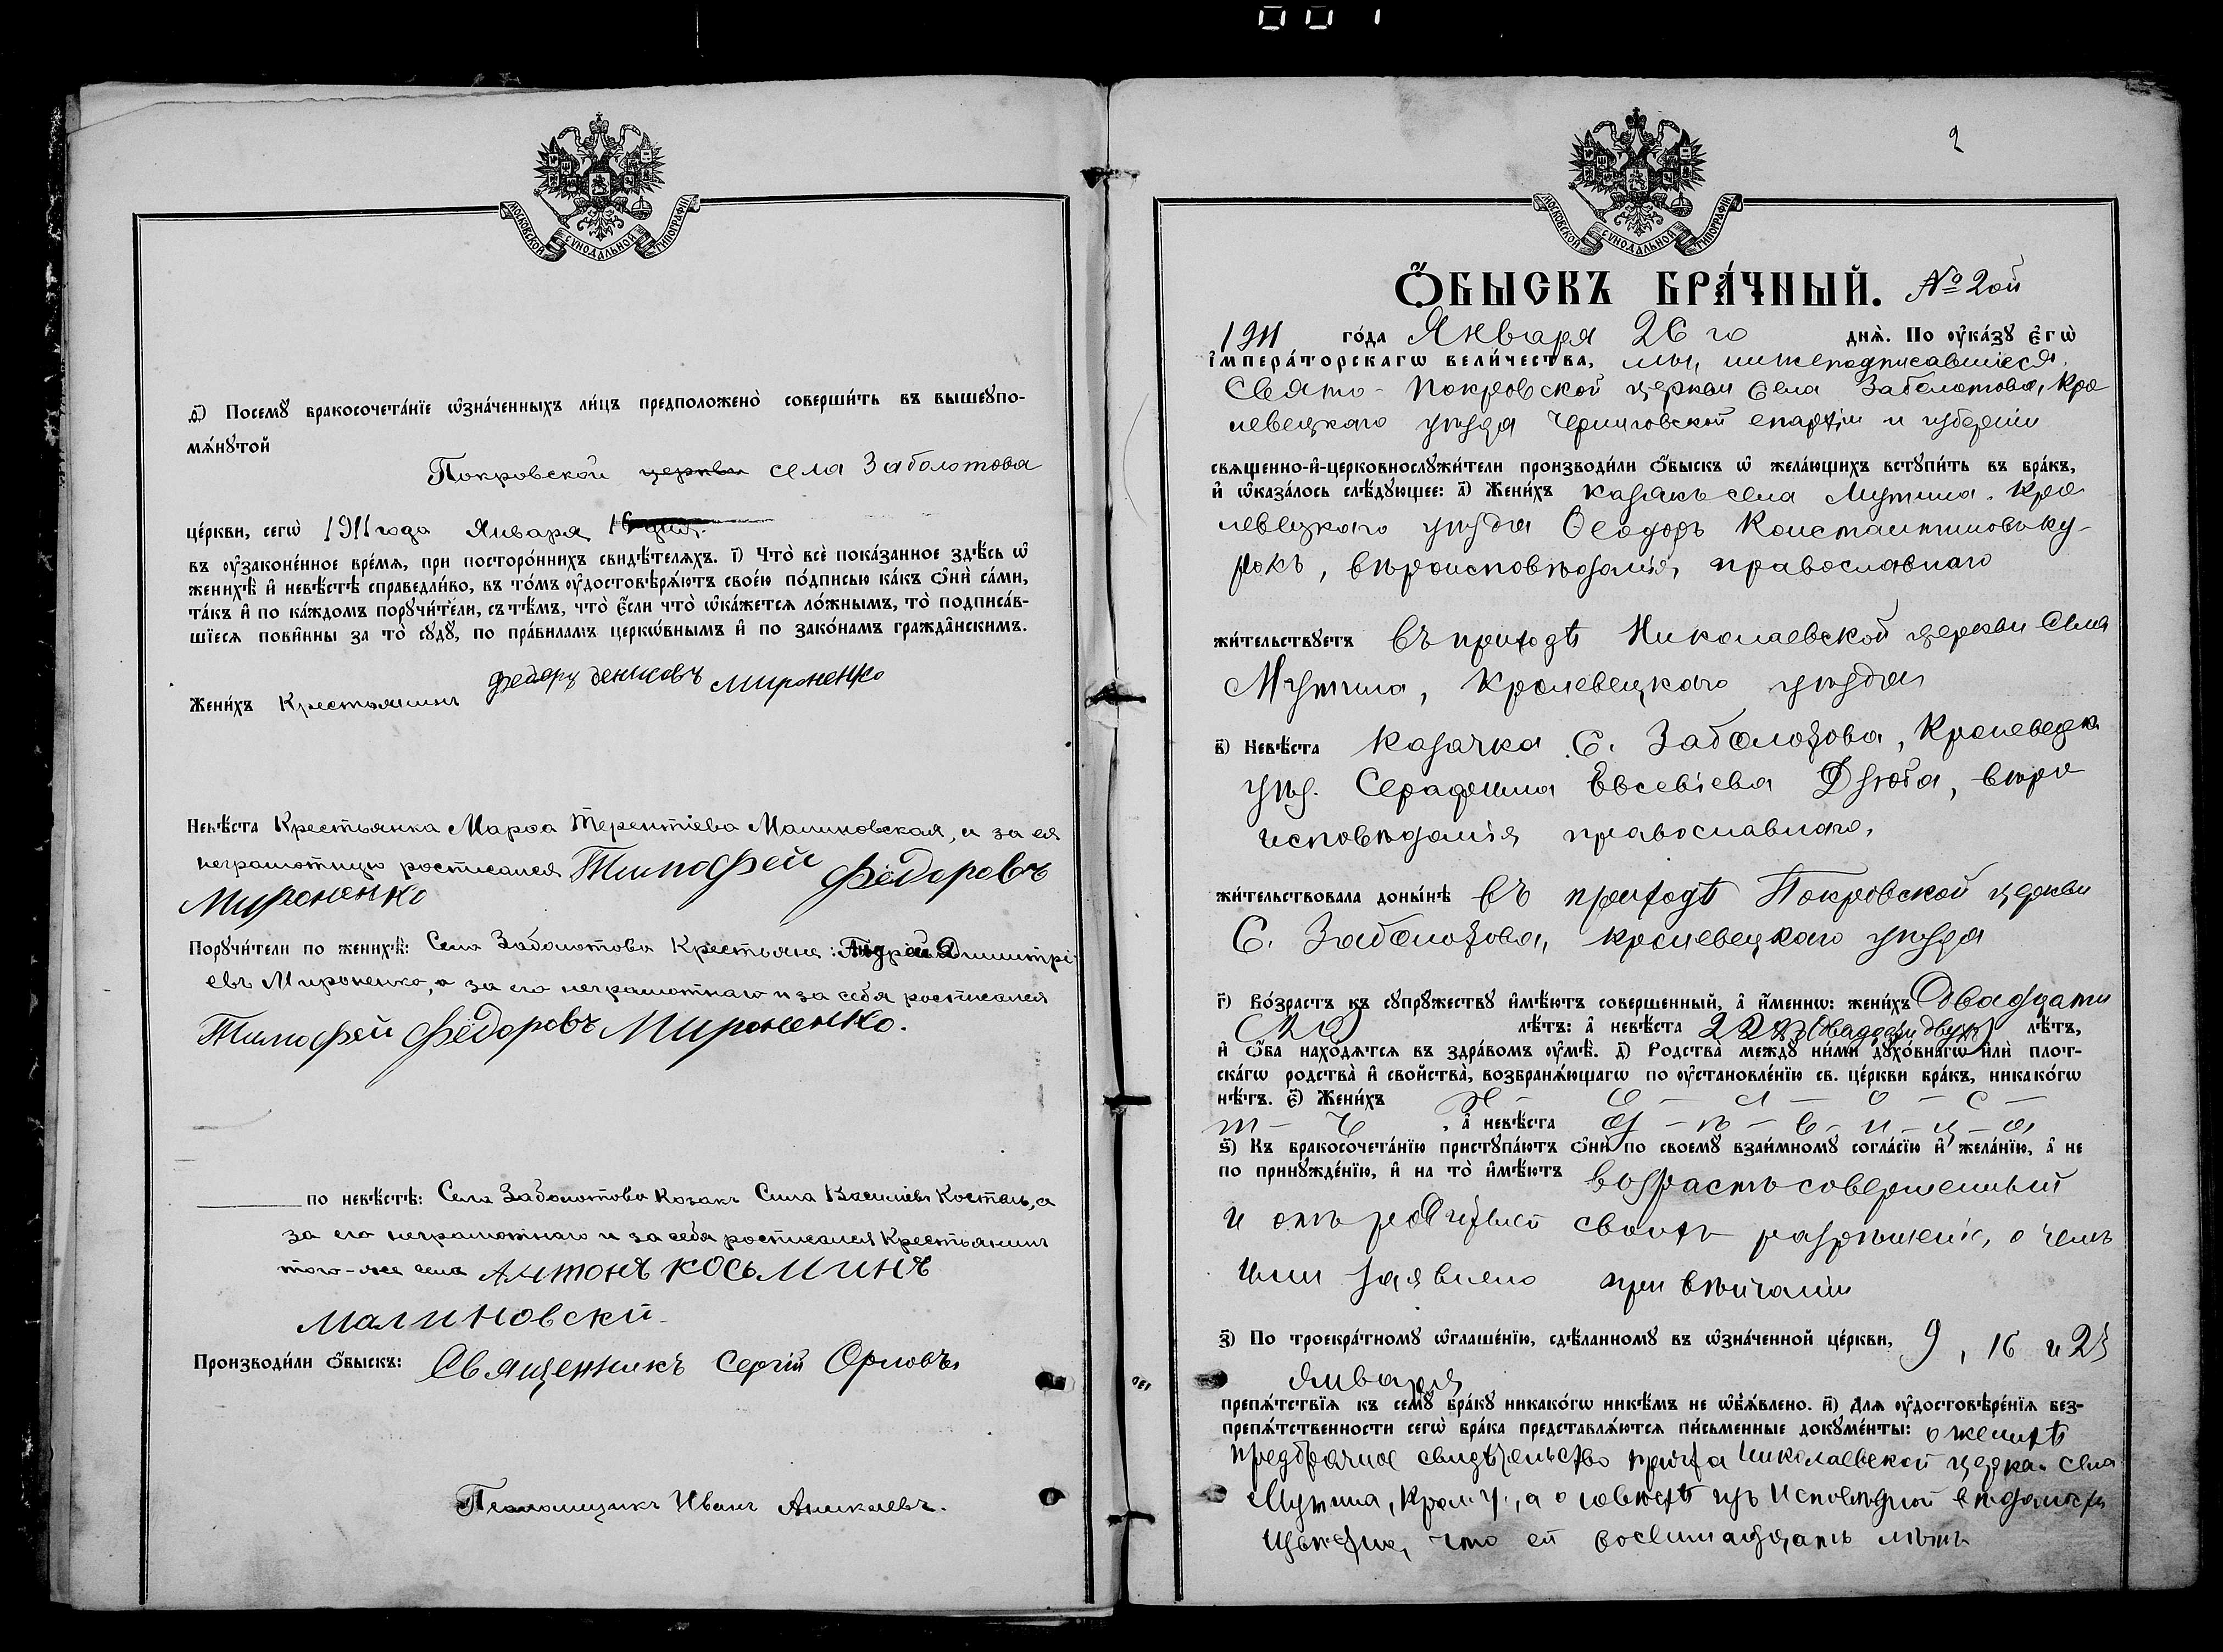 001
МОСКОВСКОЙ СѴНОДАЛЬНОЙ ТИПОГРАФІИ
д҃і) Посемꙋ̀ бракосочета́нїе ѡ҆зна́ченныхъ ли́цъ предположено̀ соверши́ть въ вышеупо-
мѧ́нꙋтой
Покровской церкви села Заболотова
це́ркви, сегѡ̀ 1911 года Января 16
въ ᲂу҆зако́ненное вре́мѧ, при посторо́ннихъ свидѣ́телѧхъ. і҃) Что̀ всѐ пока́занное здѣ́сь ѡ҆
женихѣ̀ и҆ невѣ́стѣ справедли́во, въ то́мъ ᲂу҆достовѣрѧ́ютъ свое́ю по́дписью ка́къ ѻ҆нѝ са́ми,
та́къ и҆ по ка́ждомъ порꙋчи́тели, съ тѣ́мъ, что̀ є҆́сли что̀ ѡ҆ка́жетсѧ ло́жнымъ, то̀ подписа́в-
шїесѧ пови́нны за то̀ сꙋдꙋ̀, по пра́виламъ церкѡ́внымъ и҆ по зако́намъ гражда́нскимъ.
Жени́хъ Крестьянинъ Федоръ Денисовъ Мироненко
Невѣ́ста Крестьянка Марѳа Терентіева Малиновская, а за ея
неграмотную росписался Тимофей Фёдоровъ
Мироненко
Порꙋчи́тели по женихѣ̀: Села Заболотова Крестьяне: Андрей Димитрі-
евъ Мироненко, а за его неграмотнаго и за себя росписался
Тимофей Фёдоровъ Мироненко.
по невѣ́стѣ: Села Заболотова Козакъ Сила Василіевъ Костань, а
за его неграмотнаго и за себя росписался Крестьянинъ
того-же села Антонъ Косьминъ
Малиновски
Производи́ли ѻ҆́быскъ: Священникъ Сергій Орловъ
Псаломщикъ Иванъ
2
Ѻ҆́БЫСКЪ БРА́ЧНЫЙ. № 2ой
1911 го́да Января 26 го днѧ̀. По ᲂу҆ка́зꙋ є҆гѡ̀
і҆мпера́торскагѡ вели́чества, мы, нижеподписавшіеся
Свято-Покровской церкви села Заболотова, Кро
левецкаго уѣзда Черниговской епархіи и губерніи
свѧщенно-и҆-церковнослꙋжи́тели производи́ли ѻ҆́быскъ ѡ҆ жела́ющихъ встꙋпи́ть въ бра́къ,
и҆ ѡ҆каза́лось слѣ́дꙋющее: а҃) Жени́хъ казакъ села Мутина, Кро
левецкаго уѣзда Ѳеодоръ Константиновъ Ку-
рокъ, вѣроисповѣданія, православнаго
жи́тельствꙋетъ въ приходѣ Николаевской церкви села
Мутина, Кролевецкаго уѣзда
в҃) Невѣ́ста Казачка с. Заболотова, Кролевецк.
уѣз. Серафима Евсевіева Дзюба, вѣро
исповѣданія православнаго,
жи́тельствовала доны́нѣ въ приходѣ Покровской церкви
с. Заболотова, Кролевецкаго уѣзда
г҃) Во́зрастъ къ сꙋпрꙋ́жествꙋ и҆мѣ́ютъ совершенный, а҆ и҆́менно: жени́хъ Двадцати
(20) лѣ́тъ: а҆ невѣ́ста 22 (двадцати двухъ) лѣ́тъ,
и҆ ѻ҆́ба нахо́дѧтсѧ въ здра́вомъ ᲂу҆мѣ̀. д҃) Родства̀ междꙋ̀ ни́ми дꙋхо́внагѡ и҆лѝ плот-
ска́гѡ родства̀ и҆ свойства̀, возбранѧ́ющагѡ по ᲂу҆становле́нїю св. це́ркви бра́къ, никако́гѡ
нѣ́тъ. є҃) Жени́хъ Х - о - л - о - с -
т - ъ, а҆ невѣ́ста д - ѣ - в - и - ц - а,
ѕ҃) Къ бракосочета́нїю пристꙋпа́ютъ ѻ҆нѝ по своемꙋ̀ взаи́мномꙋ согла́сїю и҆ жела́нїю, а҆ не
по принꙋжде́нїю, и҆ на то̀ и҆мѣ́ютъ возрастъ совершенный
и отъ родителей своихъ разрѣшеніе, о чемъ
ими заявлено при вѣнчаніи
з҃) По троекра́тномꙋ ѡ҆глаше́нїю, сдѣ́ланномꙋ въ ѡ҆зна́ченной це́ркви, 9, 16 и 23
января
препѧ́тствїѧ къ семꙋ̀ бра́кꙋ никако́гѡ никѣ́мъ не ѡ҆б̾ѧ́влено. и҃) Длѧ ᲂу҆достовѣре́нїѧ без-
препѧ́тственности сегѡ̀ бра́ка представлѧ́ютсѧ пи́сьменные докꙋме́нты: о женихѣ
предбрачное свидѣтельство причта Николаевской церкви села
Мутина, Крол. у., а о невѣстѣ изъ Исповѣдной вѣдомости
что ей восемнадцать лѣтъ